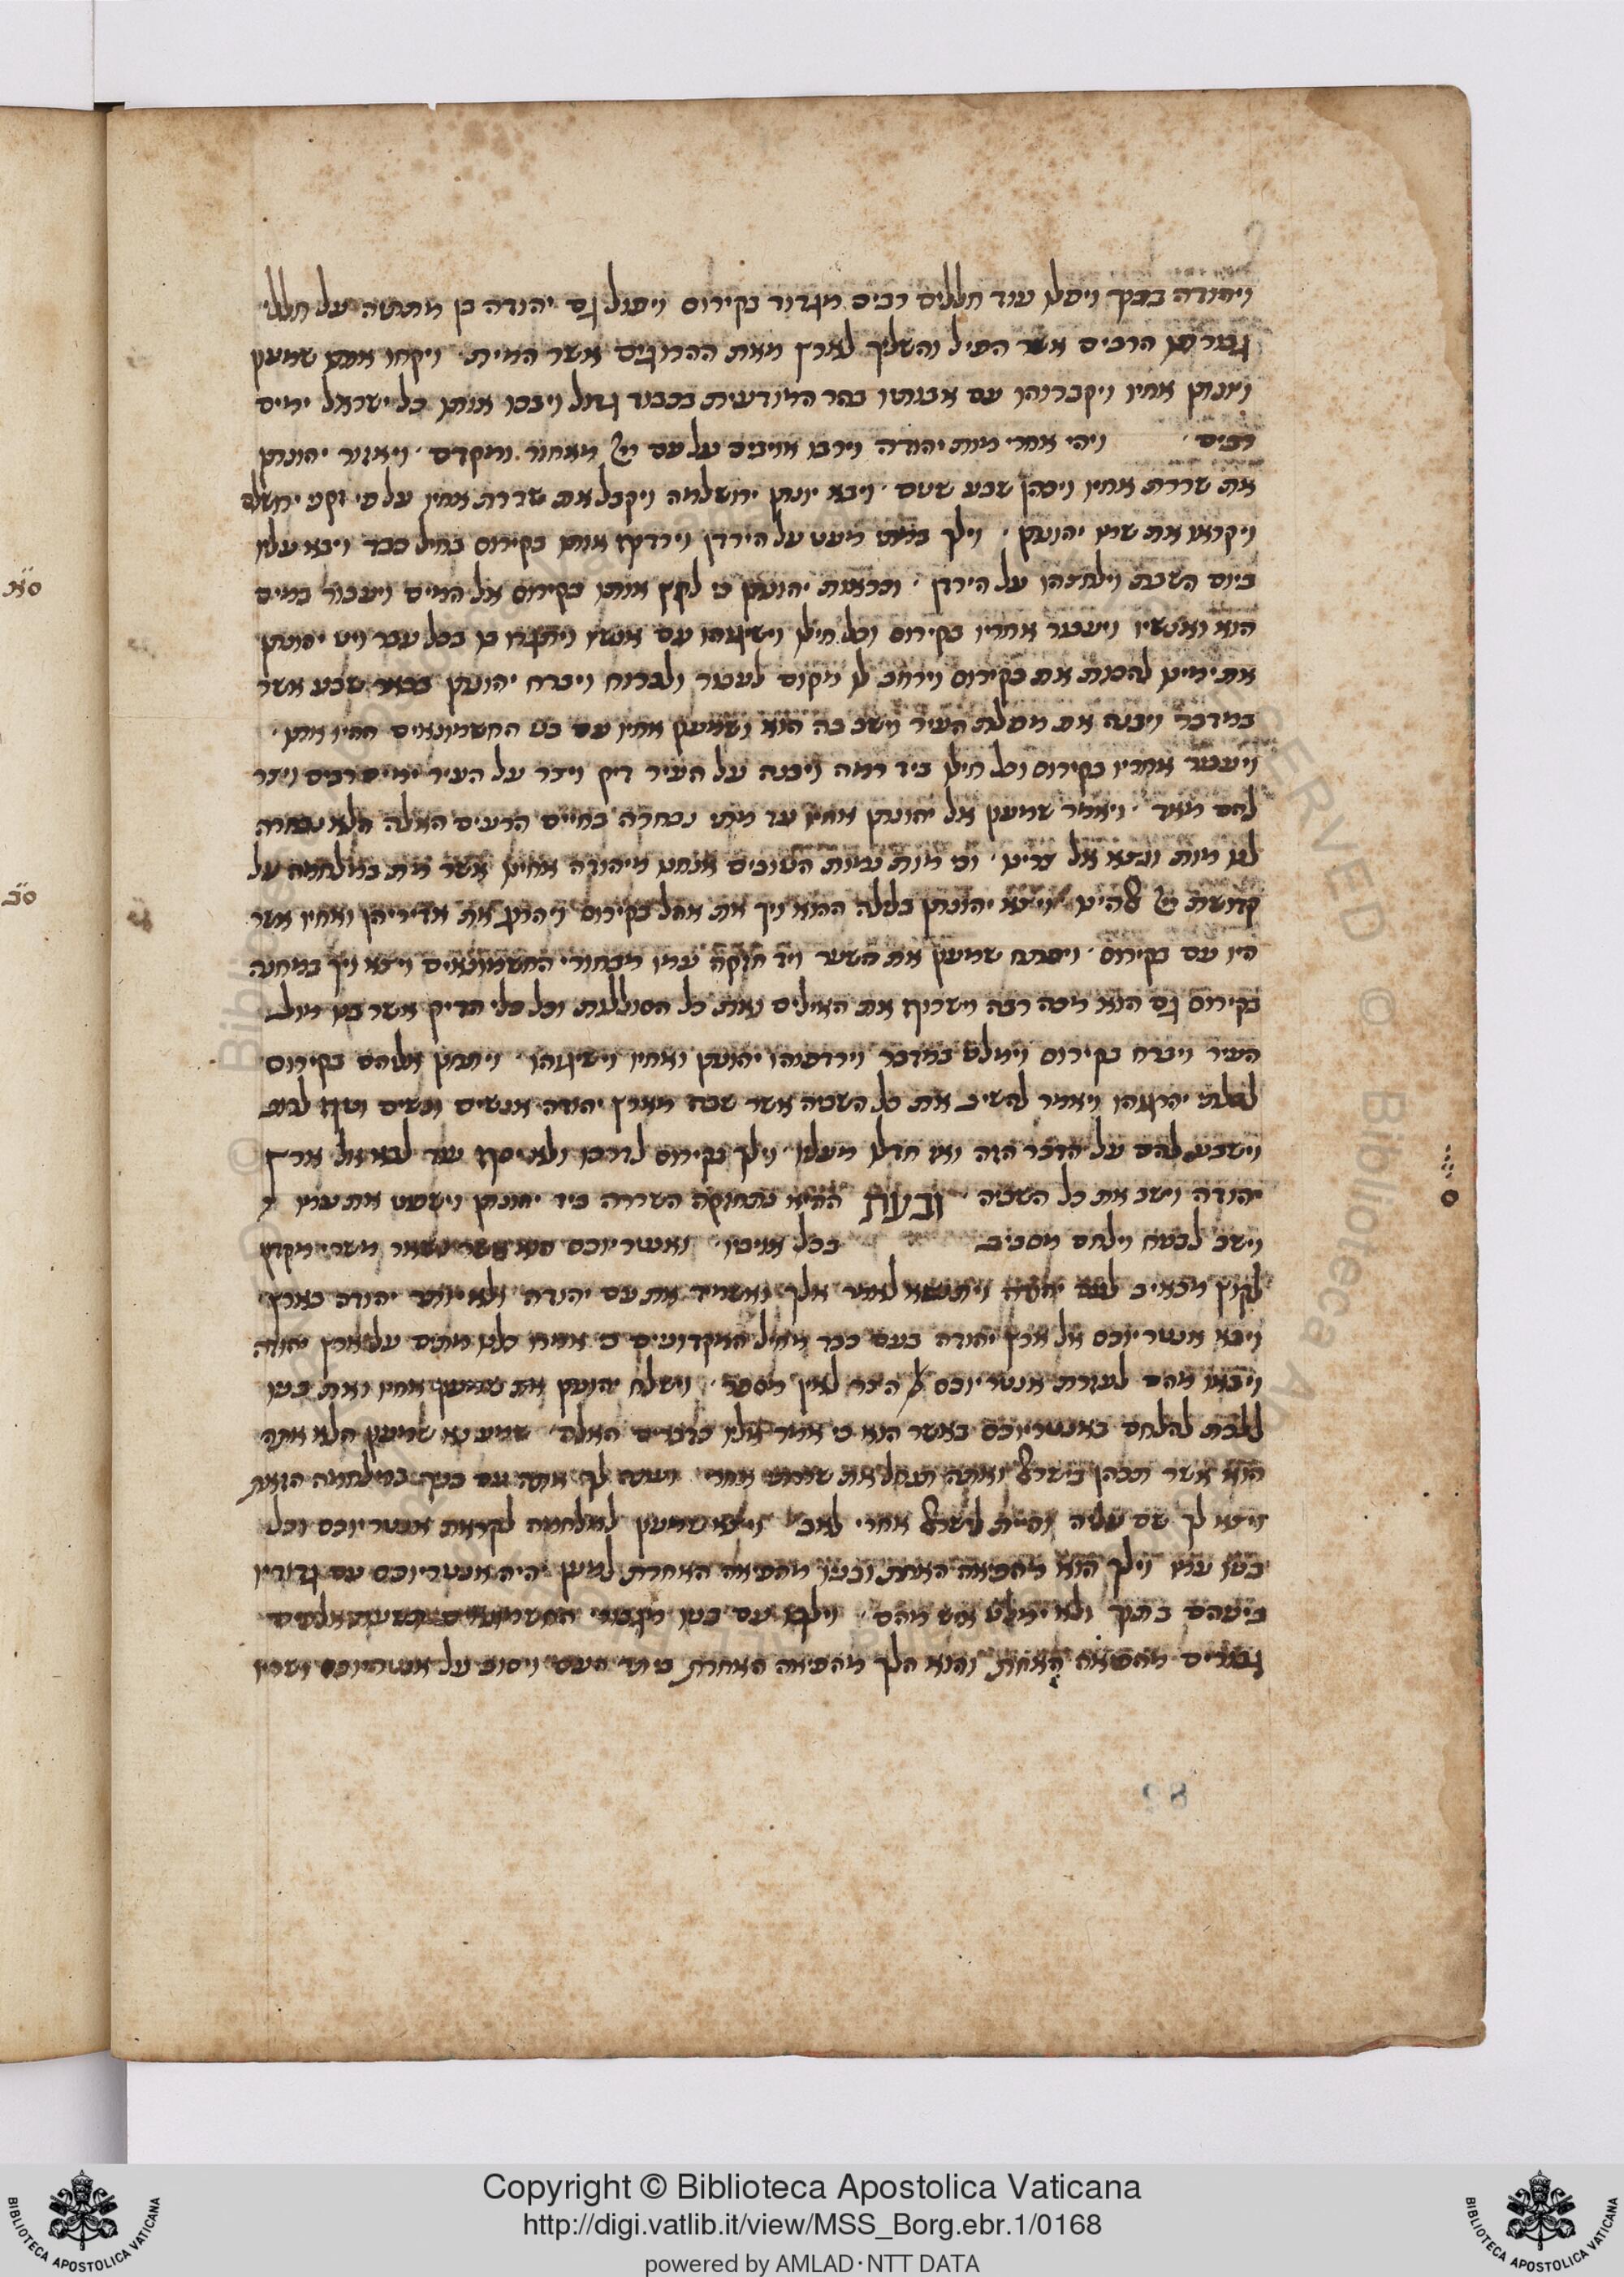 ויהודה בתוך ויפלו עוד חללים רבים מגדוד בקירוס ויפול גם יהודה בן מתתיה על חללי
הרבים אשר הפיל והשליך לארץ מאת ההרוגים אשר המית ויקחו אותו שמעון
ויונתן אחיו ויקברוהו עם אבותיו בהר המודעית בכבוד גדול ויבכו אותו כל ישראל ימים
רבים ויהי אחרי מות יהודה וירבו אויבים על עם מאחור ומקדם ויאזור יהונתן
את שררת אחיו ויכהן שבע שנים ויבא יונתן ירושלמה ויקבל את שררת אחיו על פי זקני
ויקראו את שמו יהונתן וילך במתי מעט על הירדן וירדוף אותו בקירוס בחיל כבד ויבא עליו
ביום השבת וילחמהו על הירדן וכראות יהונתן כי לחץ אותו בקירוס אל המים ויעבור במים
הוא ואנשיו ויעבור אחריו בקירוס וכל חילו וישיגוהו עם אנשיו בו בכל עבר ויט יהונתן
את ימינו להכות את בקירוס וירחב לו מקום לעבור ולברוח ויברח יהונתן בבאר שבע אשר
במדבר ויבנה את מסלת העיר וישב בה הוא ושמעון אחיו עם בני החשמונאים אחיו אתו
ויעבור אחריו בקירוס וכל חילו ביד רמה ויבנה על העיר דיק ויצר על העיר ימים רבים ויצר
להם מאד ויאמר שמעון אל יהונתן אחיו עד מתי נבחרה בחיים הרעים האלה הלא נבחרה
לנו מות ונצא אל צרינו ומי מות נמות הטובים אנחנו מיהודה אחינו אשר מת במלחמה על
קדושת ויצא יהונתן בלילה ההוא ויך את אהל בקירוס ויהרוג את אדיריהן ואחיו אשר
היו עם בקירוס ויפתח שמעון את השער ויד חזקה עמו מבחורי החשמונאים ויצא ויך במחנה
בקירוס גם הוא מכה רבה וישרוף את האילים ואת כל הסוללות וכל כלי הדיק אשר בנו מול
העיר ויברח בקירוס וימלט במדבר וירדפוהו יהונתן ואחיו וישיגוהו ויתחנן אליהם בקירוס
לבלתי יהרגוהו ויאמר להשיב את כל השביה אשר שבה מארץ יהודה אנשים ונשים וטף לבוב
וישבע להם על הדבר הזה ואז חדלו מעליו וילך בקירוס לדרכו ולא יסף עוד לבא אל ארץ
יהודה וישב את כל השביה ובעת ההיא נתחזקה השררה ביד יהונתן וישפט את עמו
וישב לבטח וילחם מסביב בכל אויביו ואנטריוכס הוא אשר נשאר משרי מקדון
לקוץ מכאיב לעם יהודה ויתנשא לאמר אלך ואשמיד את עם יהודה ולא יותר יהודה בארץ
ויבא אנטריוכס אל ארץ יהודה בעם כבד מחיל המקדונים כי אמרו כלנו מתים על ארץ יהודה
ויבאו מהם לעזרת אנטריוכס היצר לאין מספר וישלח יהונתן את שמעון אחיו ואת בניו
ללכת להלחם באנטריוכס באשר הוא כי אמר אליו כדברים האלה שמע נא שמעון הלא אתה
הוא אשר תכהן ואתה תנחל את שררתי אחרי ועתה לך אתה עם בניך במלחמה הזאת
ויצא לך שם עליה אחרי לאב ויצא שמעון למלחמה לקראת אנטריוכס וכל
בניו עמו וילך הוא מהפאה האחת ובניו מהפאה האחרת למען יהיה אנטריוכס עם גדודיו
ביניהם בתוך ולא ימלט איש מהם וילכו עם בניו מגבורי החשמונאים אלפים
גבורים מהפאה האחת והוא הלך מהפאה האחרת ביתר העם ויסוב על אנטריוכס ושריו
82
Copyright © Biblioteca Apostolica Vaticana
http://digi.vatlib.it/view/MSS_Borg.ebr.1/0168
powered by AMLAD · NTT DATA
BIBLIOTECA APOSTOLICA VATICANA
BIBLIOTECA APOSTOLICA VATICANA